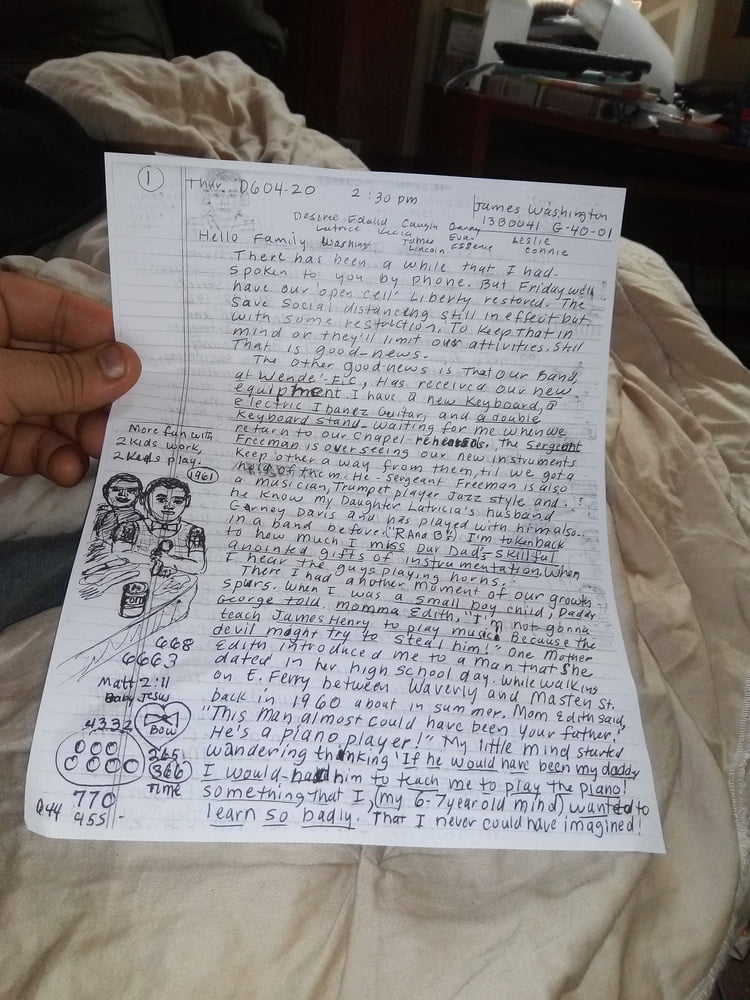 1
Thur D604-20 2:30 pm
James Washington
13B0041 G-40-01
Desiree Edalid Caugln Garny Leslie
Latrice Lucia James Eva- connie
Hello Family Washing Lincoln Essence
There has been a while that I had-
spoken to you by phone. But Friday we'll
have our 'open cell' Liberty restored. The
save Social distancing still in effect but
with some restriction. To keep that in
mind or they'll limit our activities. Still
That is good-news.
The other goodnews is that our Band,
at Wende-E.C, Has received our new
equipment. I have a new Keyboard, a
electric Ibanez Guitar, and a double
Keyboard stand- waiting for me when we
return to our Chapel- rehearsals. The Sergeant
Freeman is over seeing our new instruments
Keep other a way from them, til we got a
hold of them. He- Sergeant Freeman is also
a musician, Trumpet player Jazz style and-
he know my Daughter Latricia's husband
Garney Davis and has played with him also-
in a band before. ("R And B"). I'm token back
to how much I miss our Dad's- skillful
anointed gifts of instrumentation. When
I hear the guys playing horns.
There I had another moment of our growth
spurs. When I was a small boy child, Daddy
George told momma Edith, "I'm not gonna
teach James Henry to play music Because the
devil might try to steal him!" One Mother
Edith introduced me to a man that she
dated in her high school day. while walking
on E. Ferry between Waverly and Masten St.
back in 1960 about in summer. Mom Edith said,
"This man almost could have been your father,"
He's a piano player!" My little mind started
wandering thinking 'If he would have been my daddy
I would-had him to teach me to play the piano!
something that I, (my 6-7 year old mind) wanted to
learn so badly. That I never could have imagined!
More fun with
2 Kids work,
2 Kids play.
1961
668
6663
Matt 2:11
Baby Jesus
4332
BOW
265
366
Time
770
Q44 955-